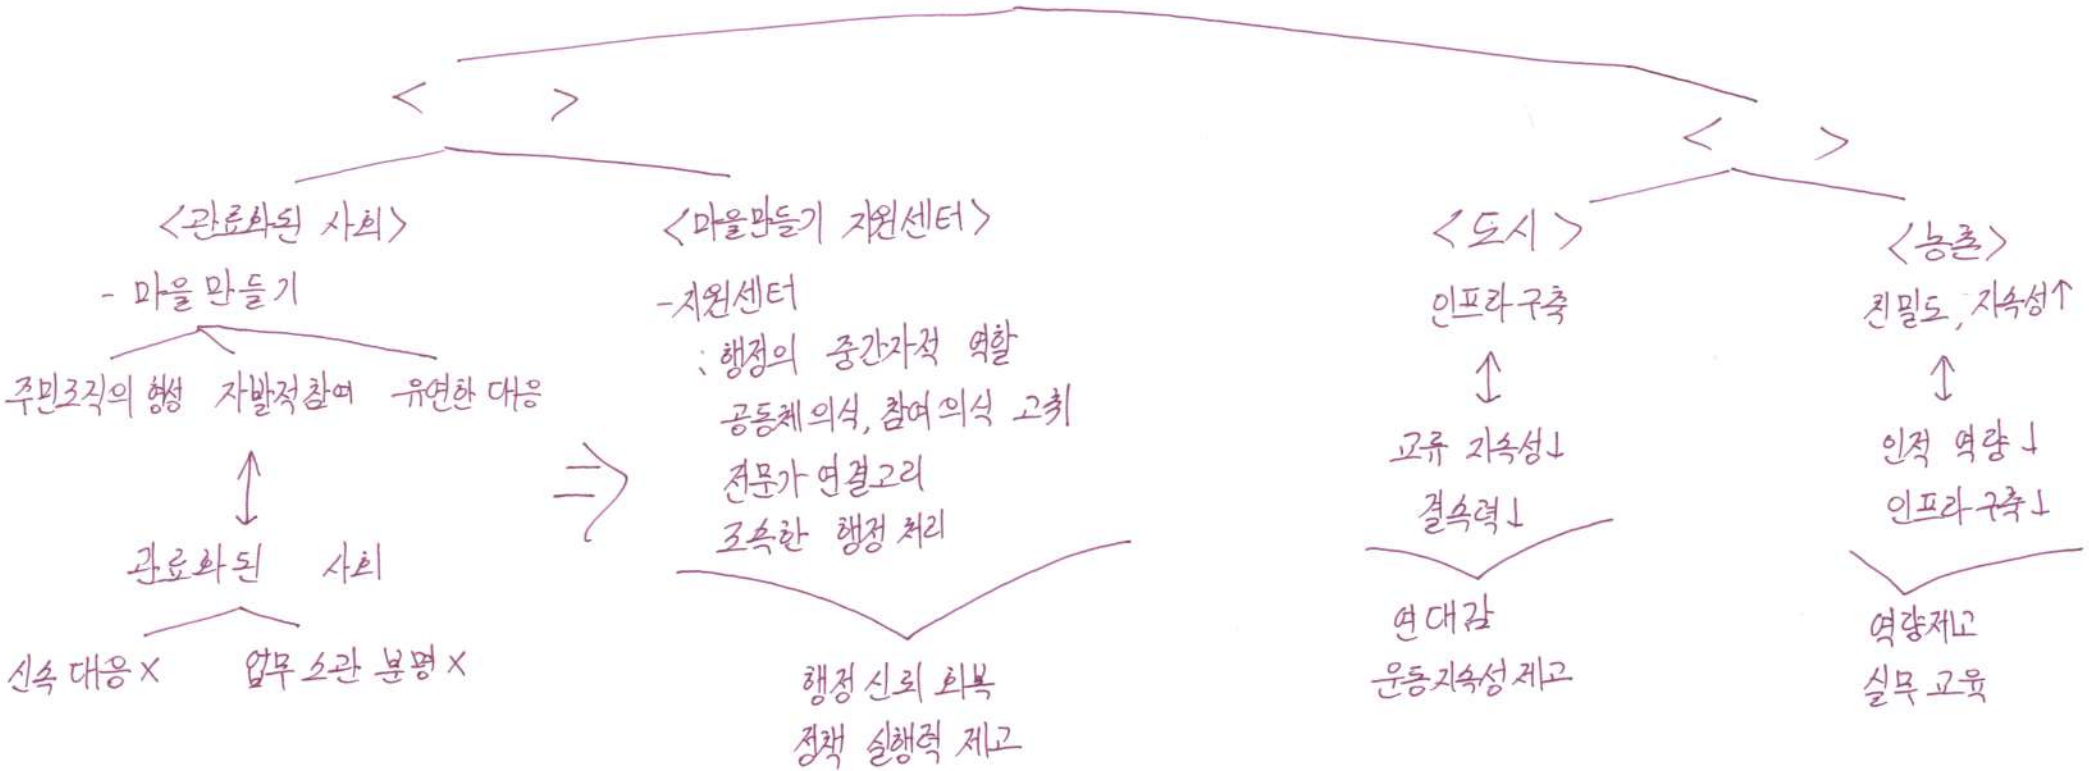 < >
<관료화된 사회>
- 마을 만들기
주민조직의 형성 자발적 참여 유연한 대응
↕
관료화된 사회
신속 대응 × 업무 소관 분명 ×
⇒
<마을만들기 지원센터>
- 지원센터
: 행정의 중간자적 역할
공동체 의식, 참여 의식 고취
전문가 연결고리
조속한 행정 처리
행정 신뢰 회복
정책 실행력 제고
< >
<도시>
인프라 구축
↕
교류 지속성↓
결속력↓
연대감
운동 지속성 제고
<농촌>
친밀도, 지속성↑
↕
인적 역량↓
인프라 구축↓
역량제고
실무 교육